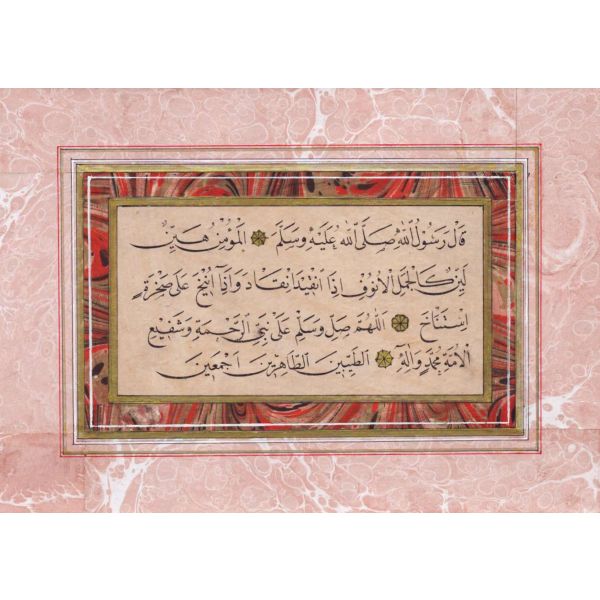 قَالَ رَسُولُ اللّٰهِ صَلَّى اللّٰهُ عَلَيْهِ وَسَلَّمَ الْمُؤْمِنُ هَيِّنٌ
لَيِّنٌ كَالْجَمَلِ الْأَنُوفِ إِذَا انْقِيدَ انْقَادَ وَإِذَا أُنِيخَ عَلَى صَخْرَةٍ
اسْتَنَاخَ اَللّٰهُمَّ صَلِّ وَسَلِّمْ عَلَى نَبِيِّ الرَّحْمَةِ وَشَفِيعِ
الْأُمَّةِ مُحَمَّدٍ وَآلِهِ الطَّيِّبِينَ الطَّاهِرِينَ أَجْمَعِينَ